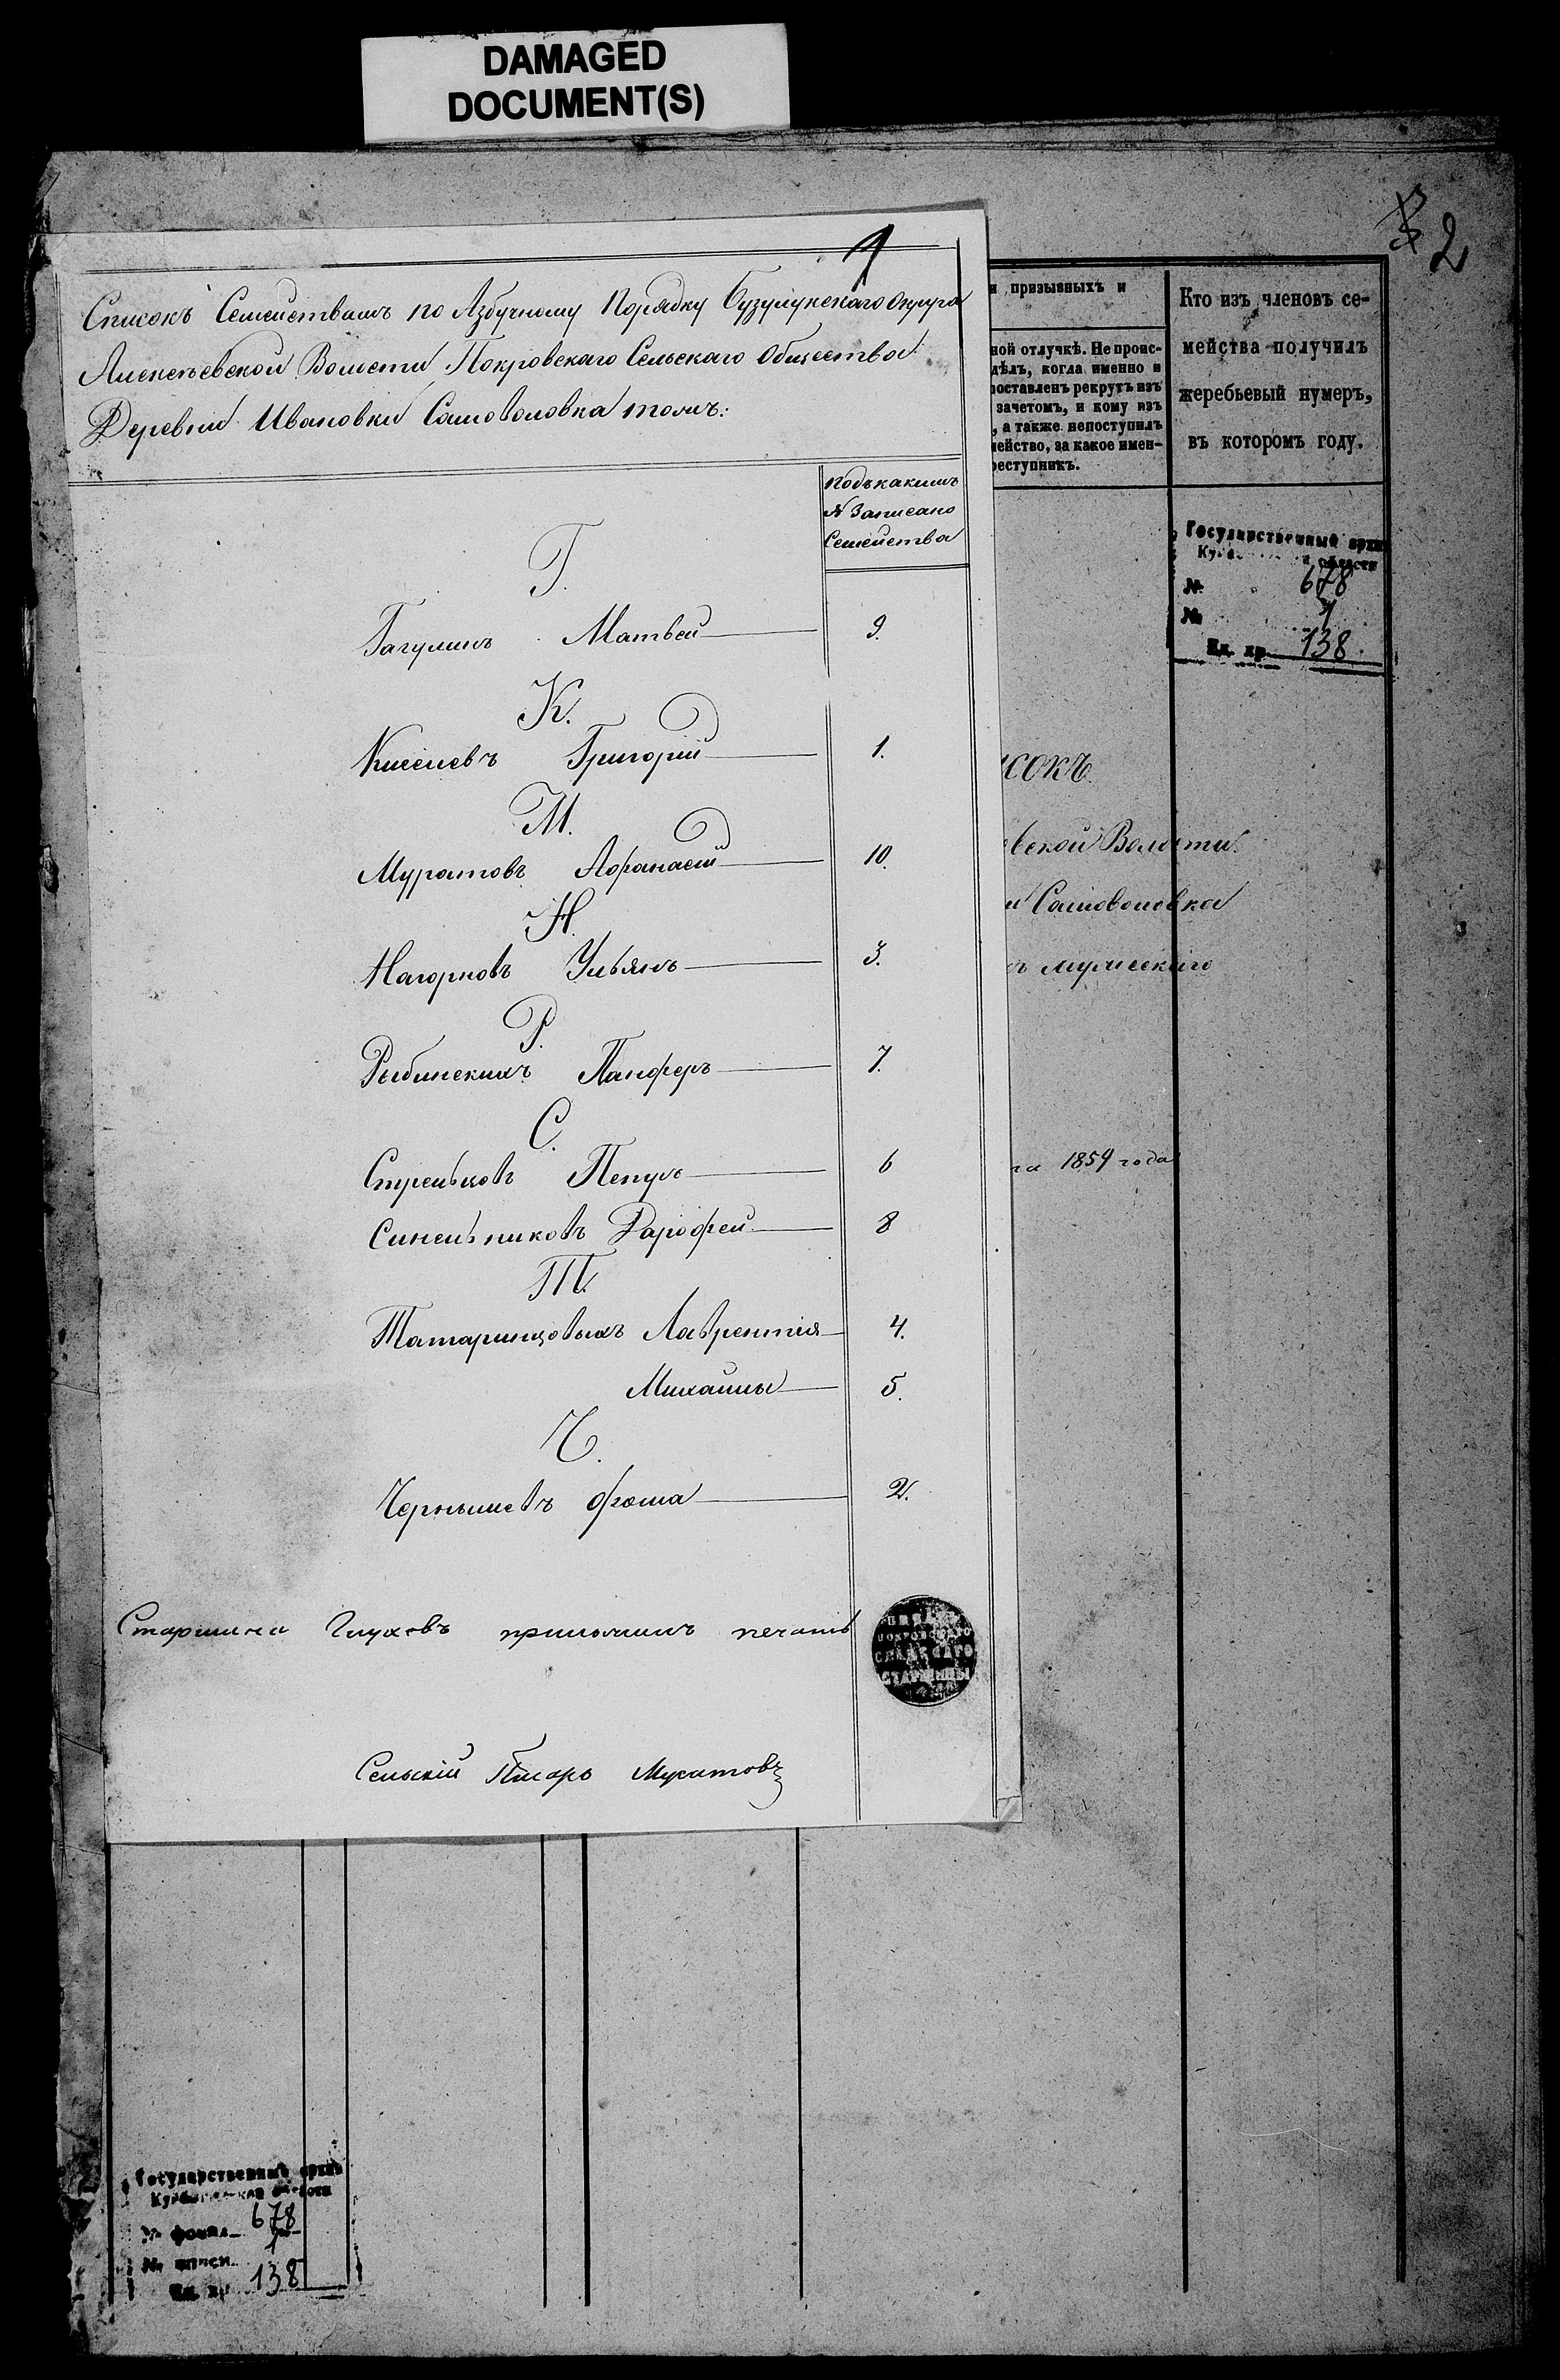 DAMAGED
DOCUMENT(S)
2
1
Списокъ Семействамъ по Азбучному Порядку Бузулукскаго Округа
Алексѣевской Волости Покровскаго Сельскаго Общества
Деревни Ивановки Самоволовка тожъ:
подъ какимъ
№ Записано
Семейства
Г.
Гагулинъ Матвей 9.
К.
Киселевъ Григорій 1.
М.
Муратовъ Афанасій 10.
Н.
Нагорновъ Ульянъ 3.
Р.
Рыбинскихъ Панферъ 7.
С.
Стрельковъ Петръ 6
Синельниковъ Дарофей 8
Т.
Татаринцовыхъ Лаврентия 4.
Михайлы 5.
Ч.
Чернышевъ Фома 2.
Старшина Глуховъ приложилъ печать
ПОКРОВСКАГО
СЕЛЬСКАГО
СТАРШИНЫ
Сельскій Писарь Мукатовъ
и призывныхъ и
ной отлучкѣ. Не проис-
дѣлъ, когда именно и
поставленъ рекрутъ изъ
зачетомъ, и кому изъ
, а также непоступилъ
мейство, за какое имен-
реступникъ.
Кто изъ членовъ се-
мейства получилъ
жеребьевый нумеръ,
въ которомъ году.
Государственный архив
области
№ 678
№ 1
Ед. хр. 138.
исокъ
вской Волости
и Самоволовка
ъ мужескаго
га 1859 года
Государственный архив
Куйбышевской области
№ фонда 678
№ описи 1
Ед. хр 138